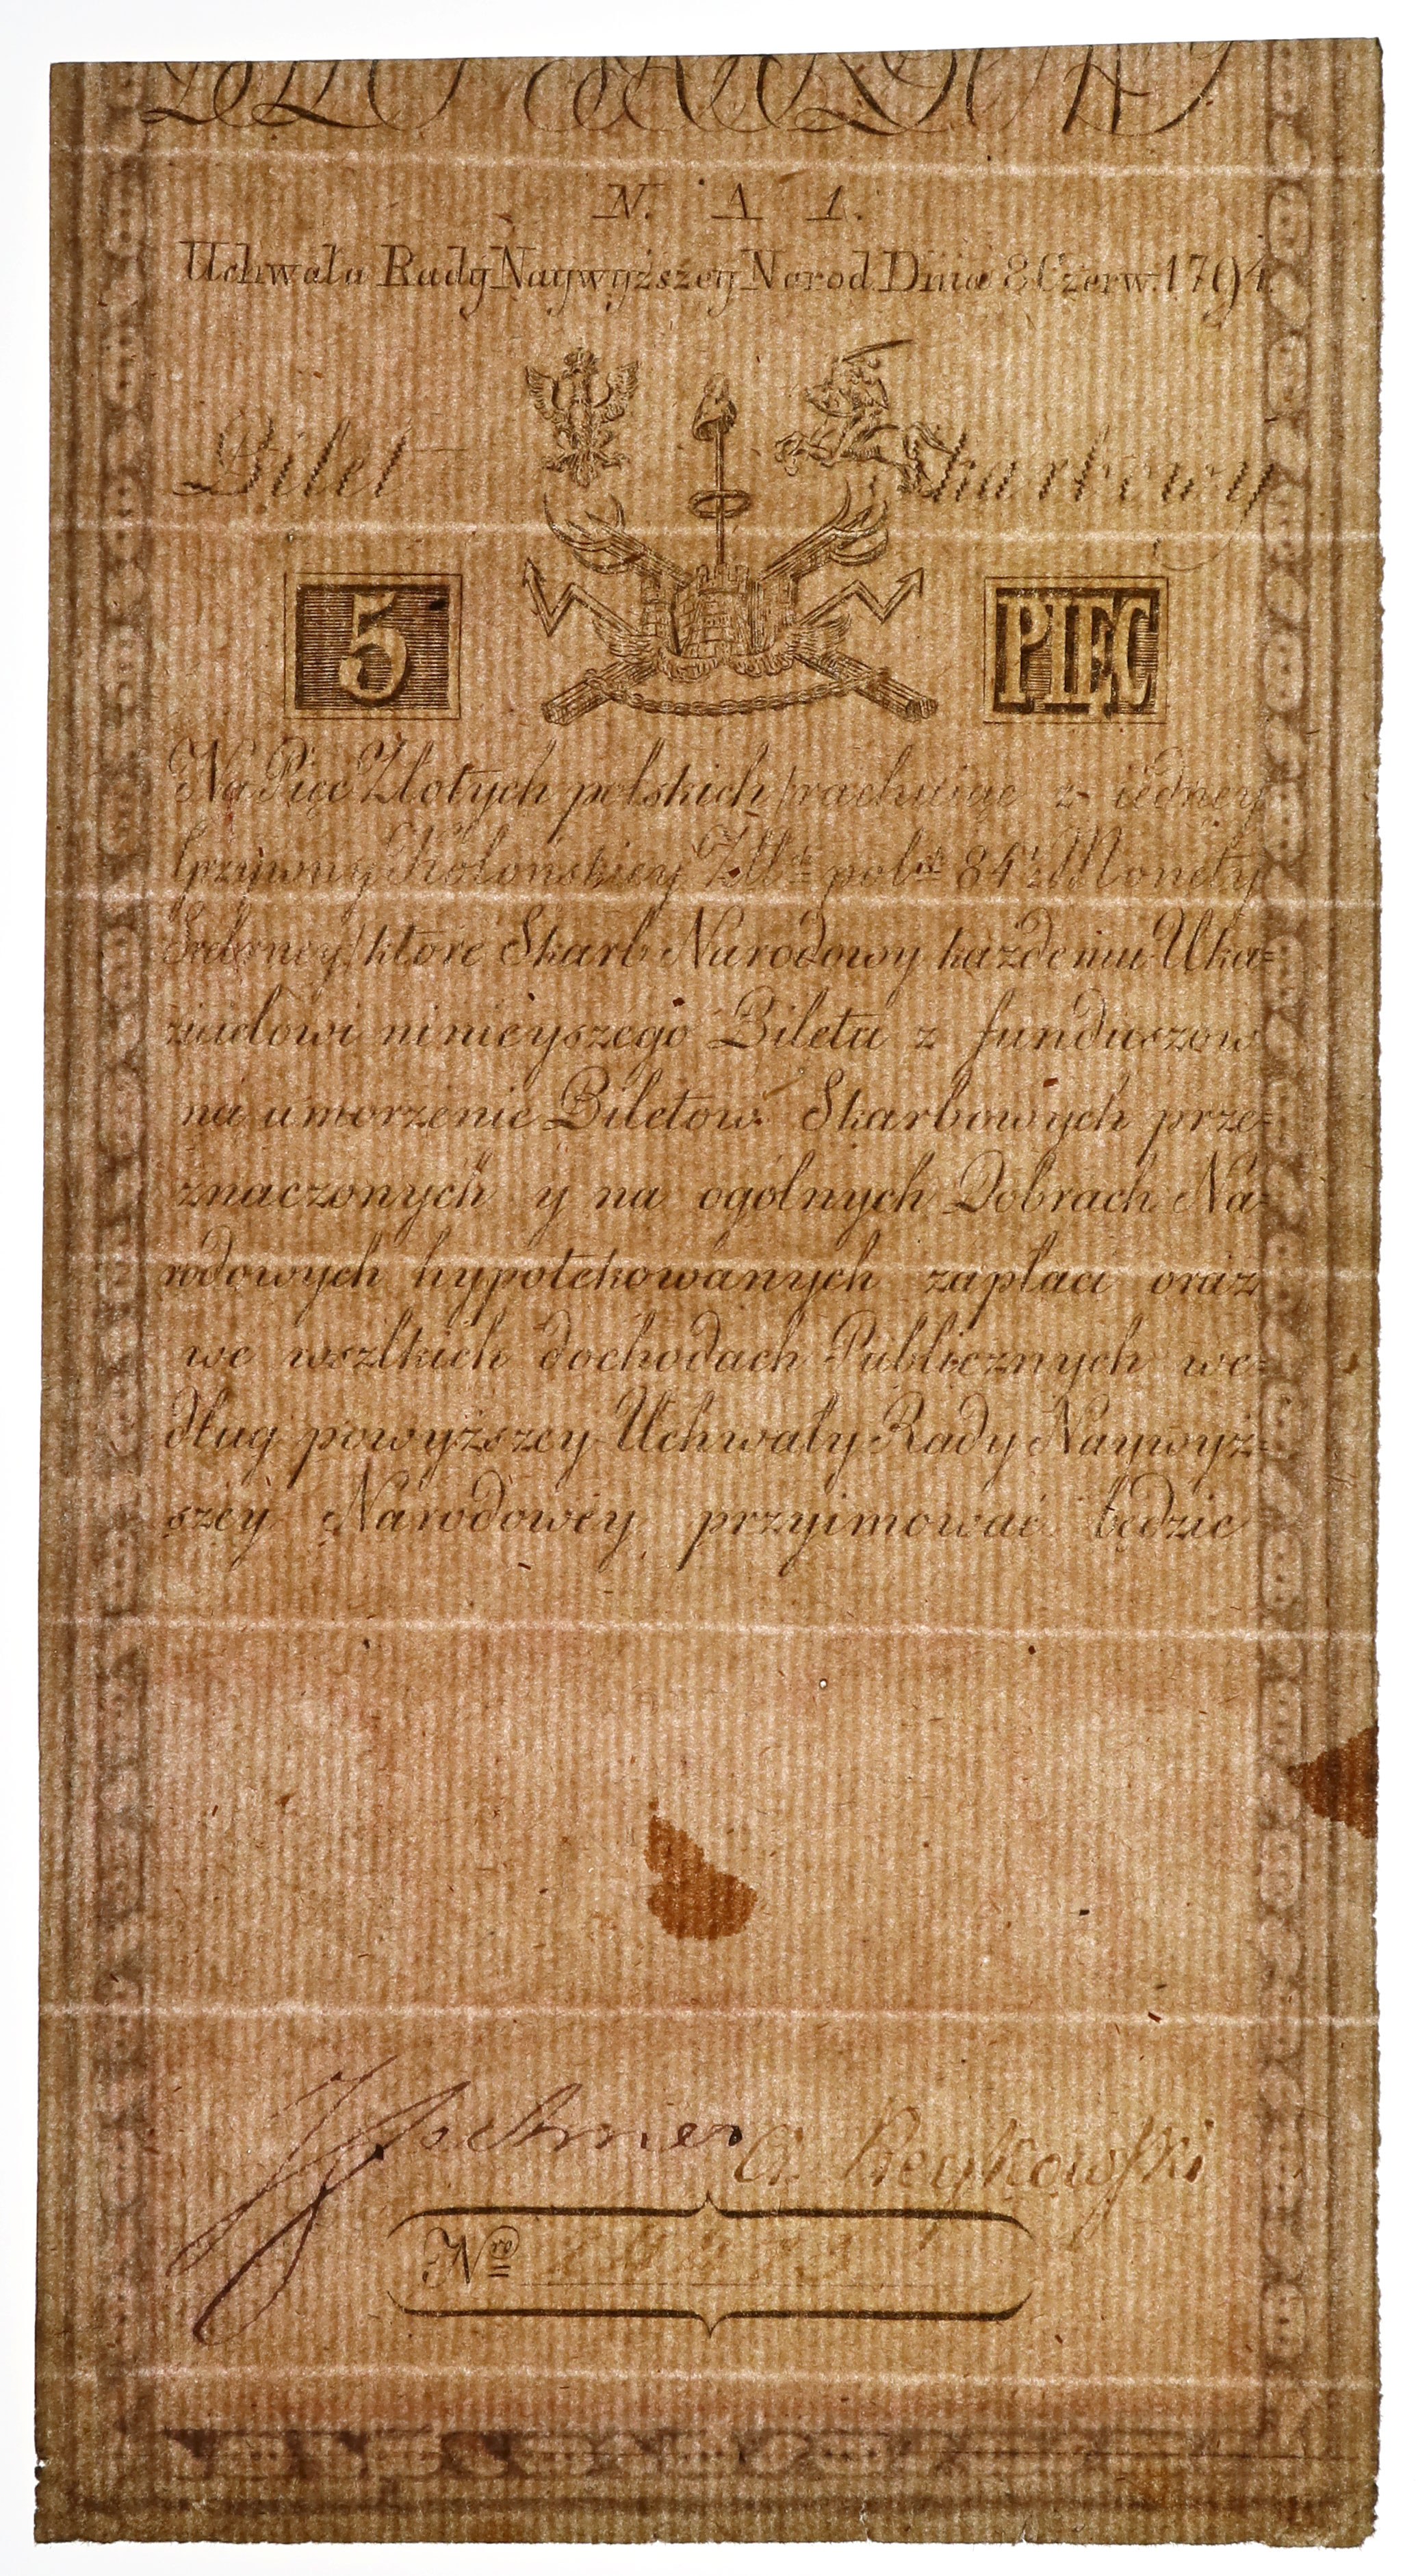 N. A 1.
Uchwała Rady Naywyższey Narod. Dnia 8 Czerw. 1794.
Bilet Skarbowy
5 PIĘC
Na Pięć Złotych polskich /rachuiąc z iedney
Grzywny Kolonskiey Złłch pol.ch 84½ Monety
Srebrney/ ktore Skarb Narodowy każdemu Uka=
zicielowi ninieyszego Biletu z funduszow
na umorzenie Biletow Skarbowych prze=
znaczonych y na ogolnych Dobrach Na=
rodowych hypotekowanych zapłaci oraz
we wszlkich dochodach Publicznych we=
dług powyższey Uchwały Rady Naywyż=
szey Narodowey przyimować będzie
Nro